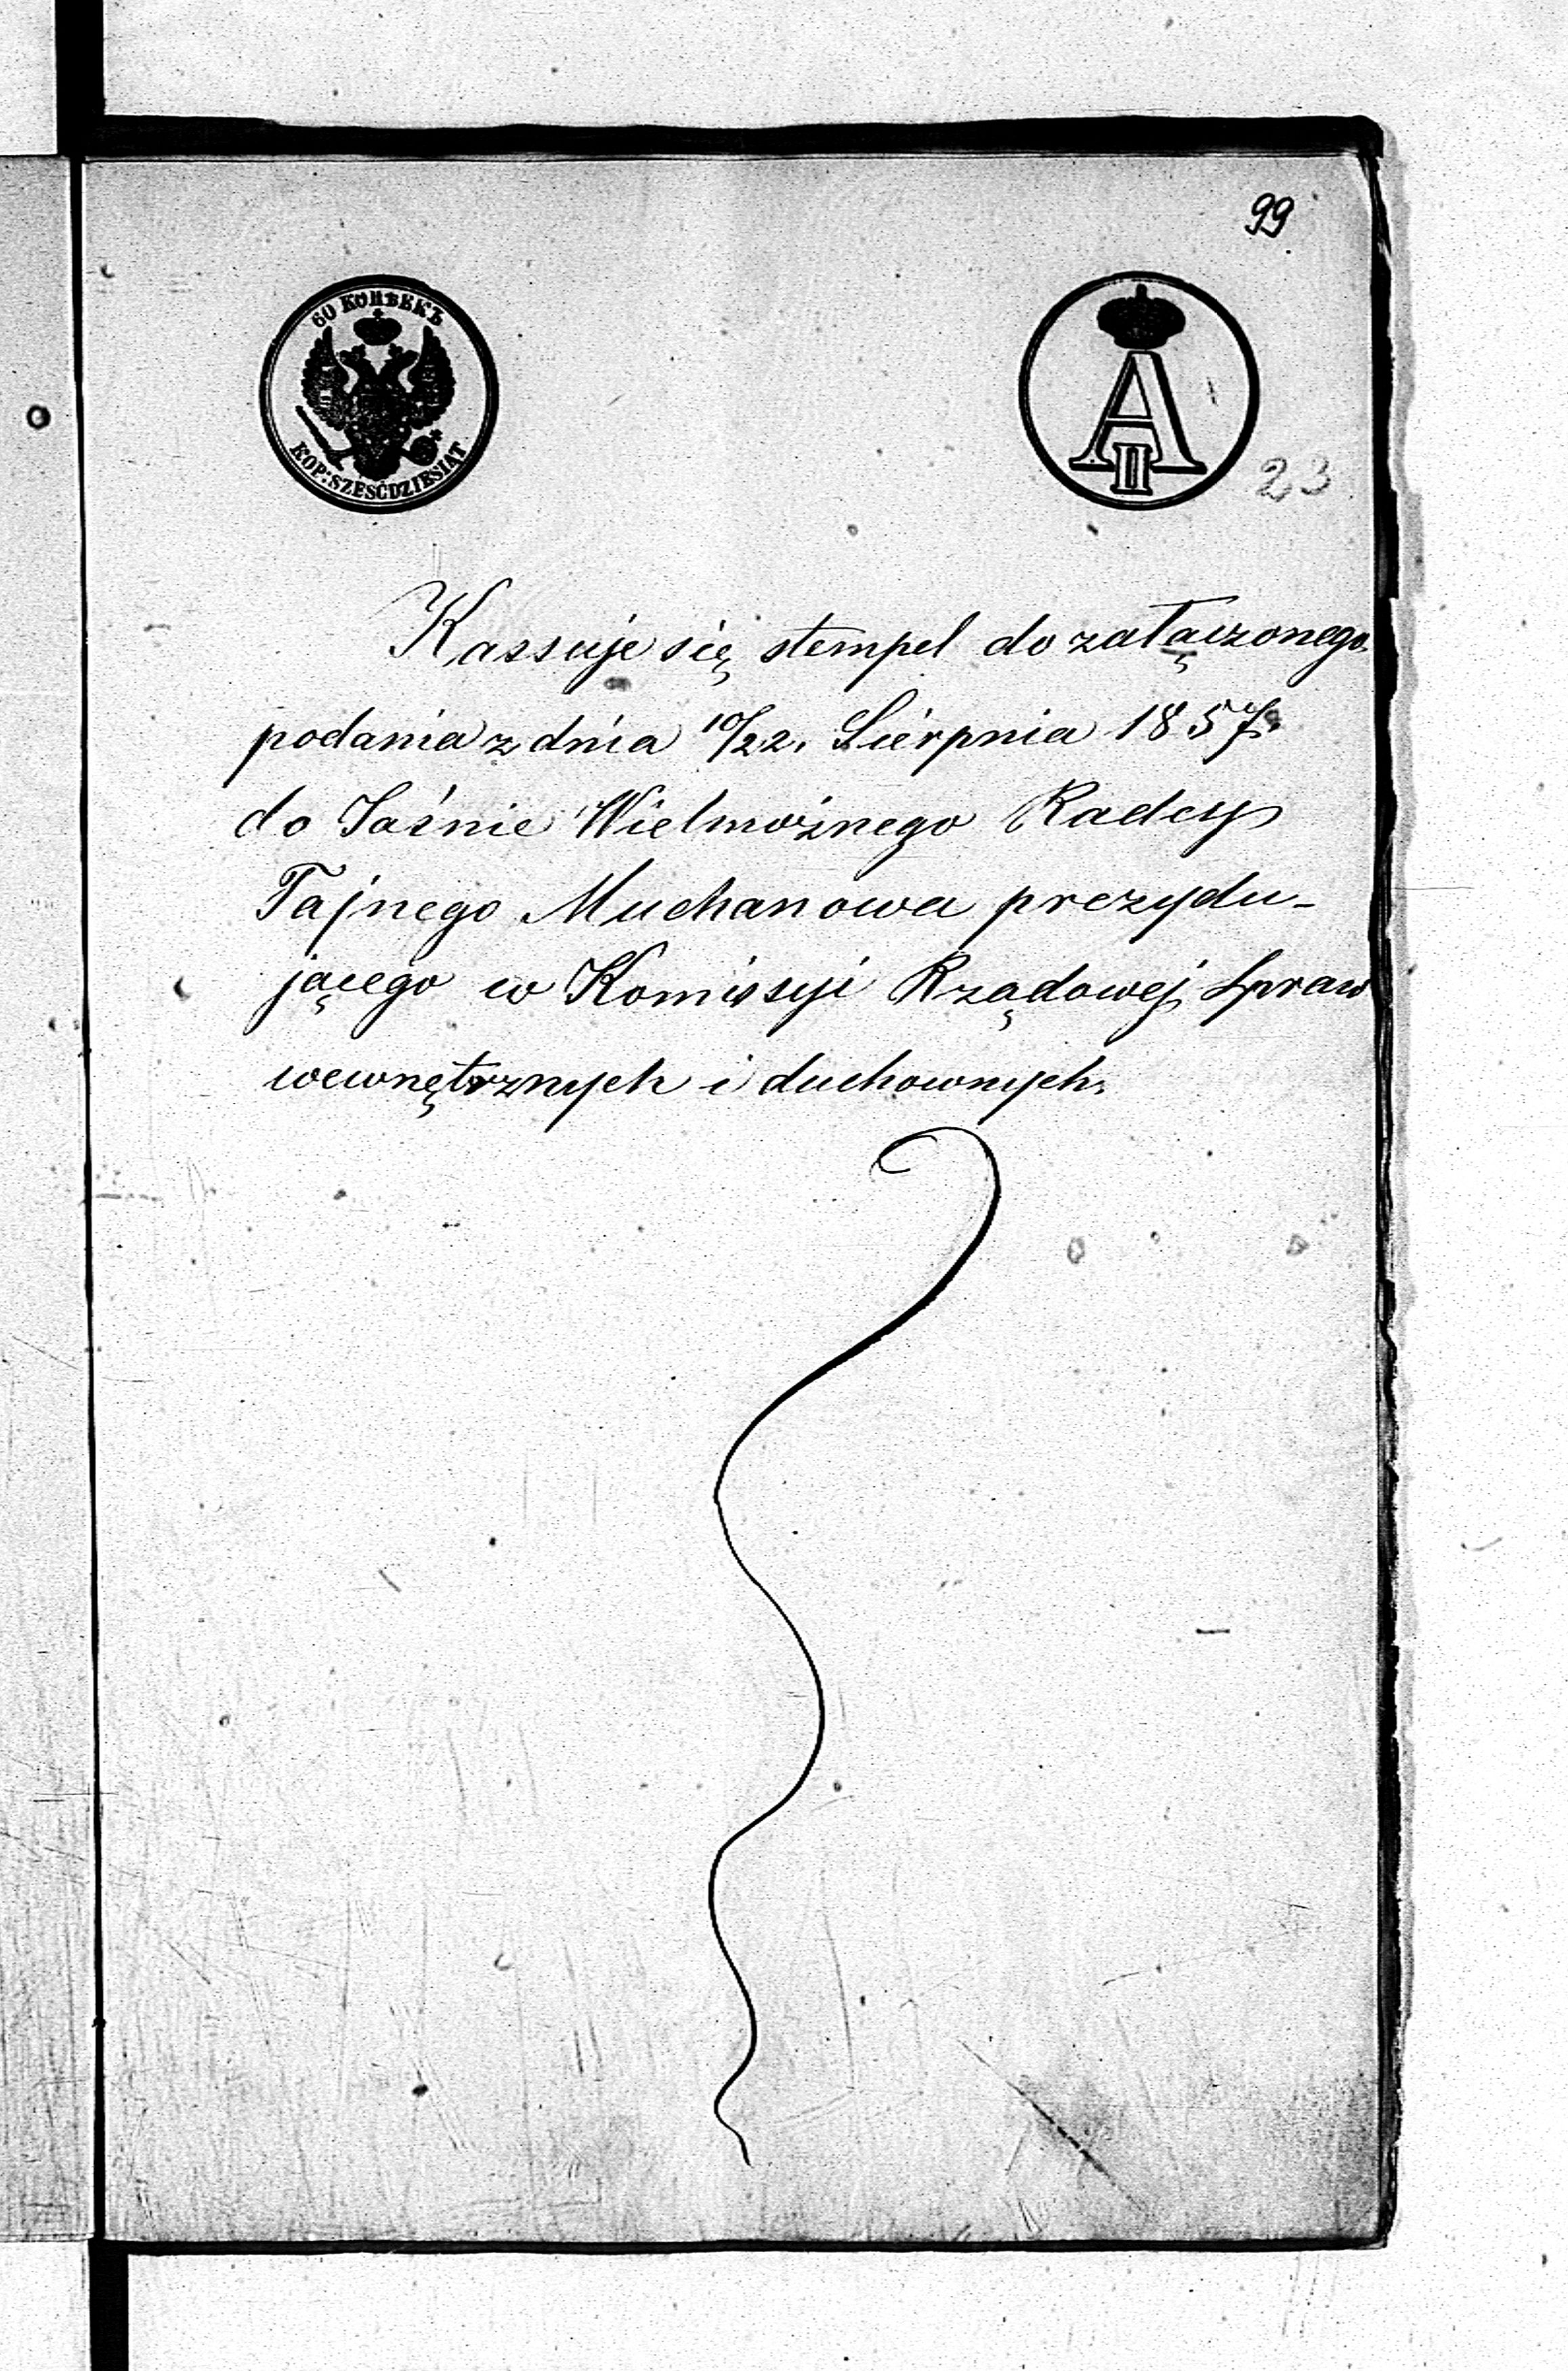 99
60 КОПѢЕКЪ
KOP: SZEŚĆDZIESIĄT
A
II
23
Kassuje się stempel do załączonego
podania z dnia 10/22. Sierpnia 1857r.
do Jaśnie Wielmożnego Radcy
Tajnego Muchanowa prezydu-
jącego w Komissyi Rządowej Spraw
wewnętrznych i duchownych.